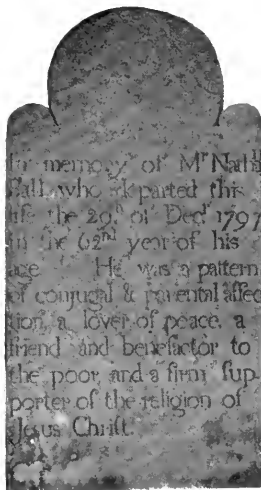 In memory of Mr Nathl
Hall, who departed this
life the 29th of Decr 1797
in the 62nd year of his
age He was a pattern
of conjugal & parental affec
tion, a lover of peace, a
friend and benefactor to
the poor, and a firm sup-
porter of the religion of
Jesus Christ.